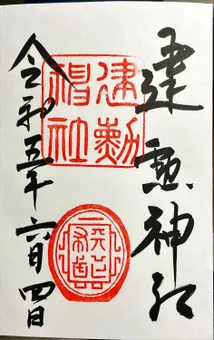 建勲神社
建勲
神社
令和五年六月四日